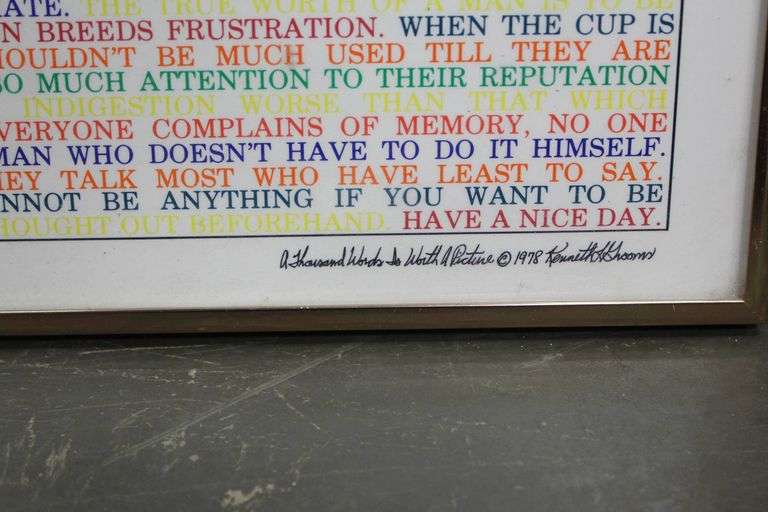 ATE. THE TRUE WORTH OF A MAN IS TO BE
N BREEDS FRUSTRATION. WHEN THE CUP IS
HOULDN'T BE MUCH USED TILL THEY ARE
SO MUCH ATTENTION TO THEIR REPUTATION
INDIGESTION WORSE THAN THAT WHICH
VERYONE COMPLAINS OF MEMORY, NO ONE
MAN WHO DOESN'T HAVE TO DO IT HIMSELF.
HEY TALK MOST WHO HAVE LEAST TO SAY.
NNOT BE ANYTHING IF YOU WANT TO BE
HOUGHT OUT BEFOREHAND. HAVE A NICE DAY.
A Thousand Words Is Worth A Picture © 1978 Kenneth